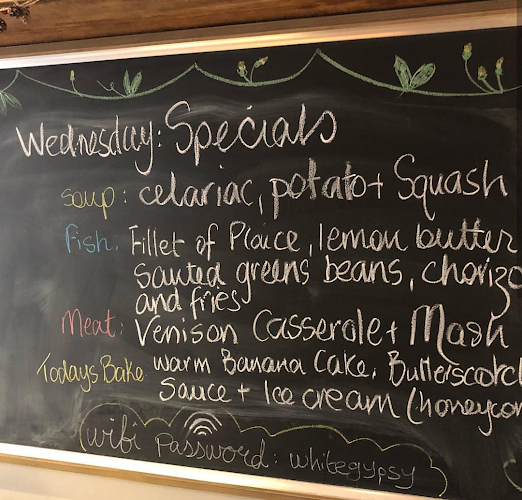 Wednesday: Specials
Soup: celariac, potato + Squash
Fish: Fillet of Plaice, lemon butter
Sauted greens beans, chorizo
and fries
Meat: Venison Casserole + Mash
Todays Bake warm Banana Cake, Butterscotch
Sauce + Ice cream (honeycom
wifi password: whitegypsy